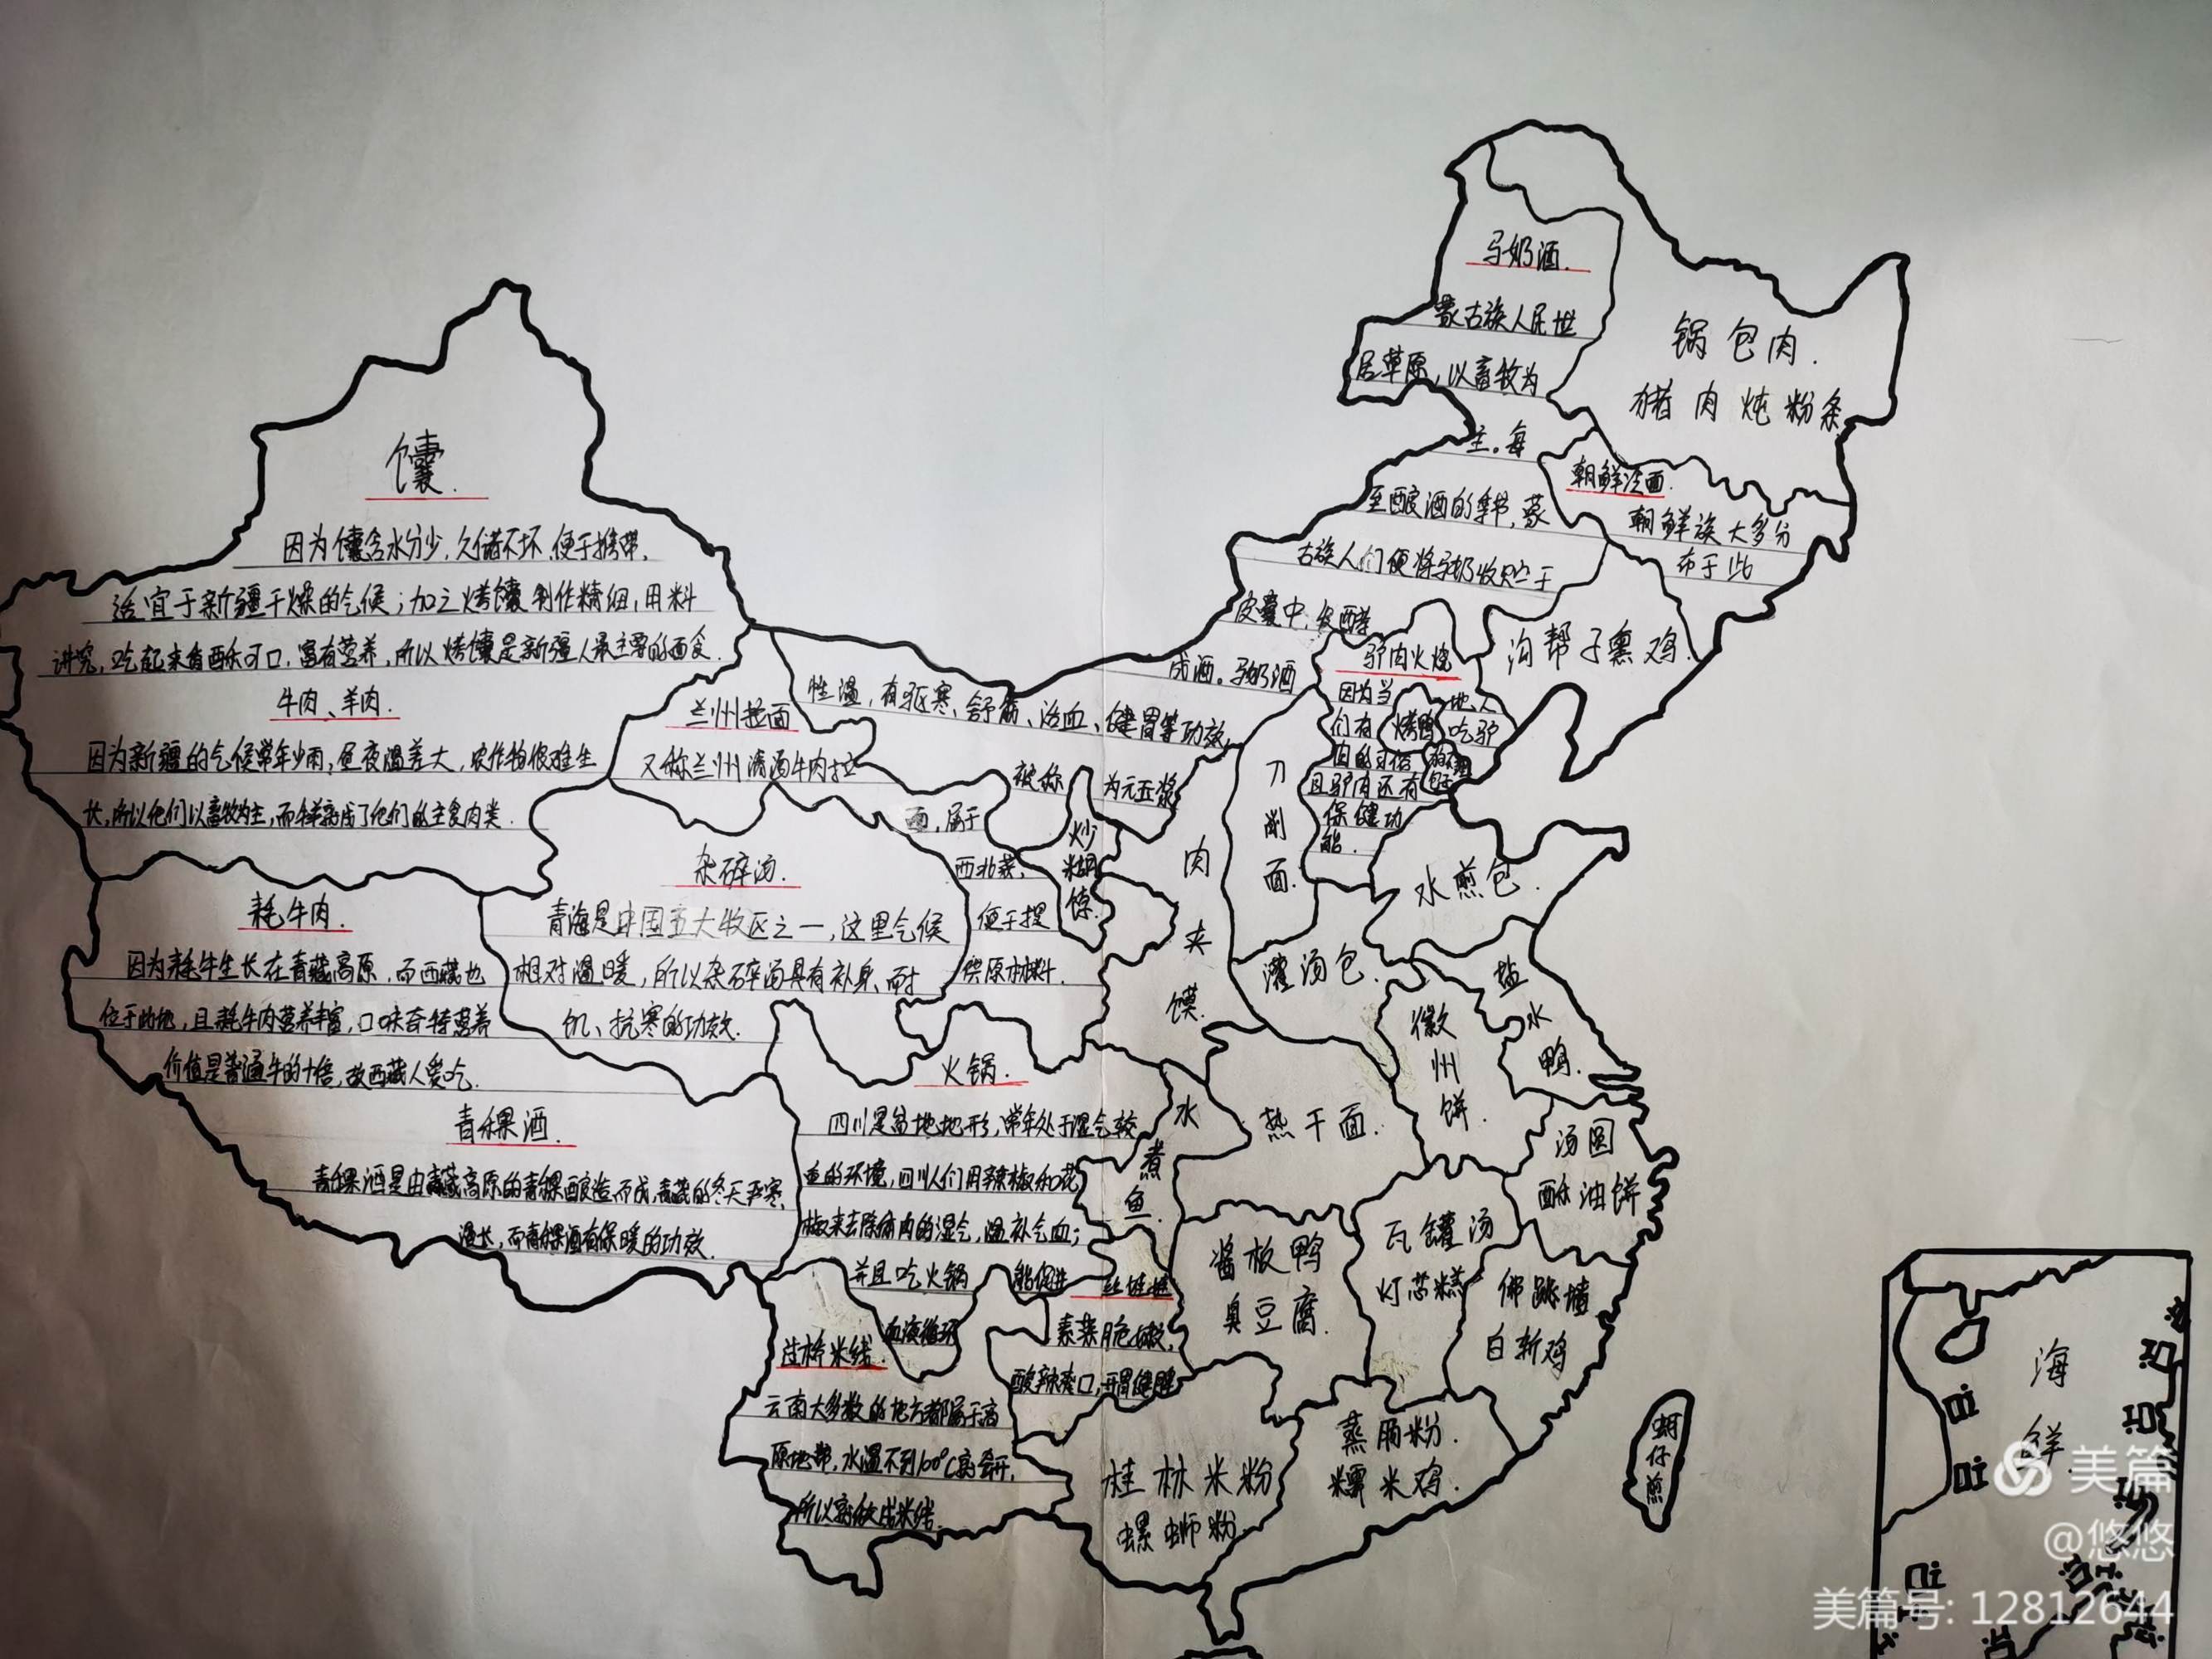 马奶酒.
蒙古族人民世
居草原,以畜牧为
主。每
至酿酒的季节,蒙
古族人们便将马奶收贮于
皮囊中,发酵
成酒。马奶酒
性温,有驱寒、舒筋、活血、健胃等功效,
被称
为元玉浆
锅包肉.
猪肉炖粉条
朝鲜冷面.
朝鲜族大多分
布于此
沟帮子熏鸡.
驴肉火烧
因为当
地人
们有
吃驴
且驴肉还有
保健功
能.
烤鸭
馕.
因为馕含水分少,久储不坏,便于携带,
适宜于新疆干燥的气候;加之烤馕制作精细,用料
讲究,吃起来香酥可口,富有营养,所以烤馕是新疆人最主要的面食.
牛肉、羊肉.
因为新疆的气候常年少雨,昼夜温差大,农作物很难生
长,所以他们以畜牧为主,而牛羊就成了他们的主食肉类.
兰州拉面
又称兰州清汤牛肉拉
面,属于
西北菜,
便于提
供原材料.
炒
糊
饽.
肉
夹
馍.
刀
削
面.
水煎包.
杂碎汤.
青海是中国五大牧区之一,这里气候
相对温暖,所以杂碎汤具有补身、耐
饥、抗寒的功效.
耗牛肉.
因为耗牛生长在青藏高原,而西藏也
位于此地,且耗牛肉营养丰富,口味奇特营养
价值是普通牛的十倍,故西藏人爱吃.
青稞酒.
青稞酒是由青藏高原的青稞酿造而成,青藏的冬天严寒、
漫长,而青稞酒有保暖的功效.
灌汤包.
盐
水
鸭.
徽
州
饼.
火锅.
四川是盆地地形,常年处于湿气较
重的环境,四川人们用辣椒和花
椒来去除体内的湿气,温补气血;
并且吃火锅
能促进
血液循环
水
煮
鱼.
热干面.
汤圆
酥油饼
丝娃娃
素菜脆嫩,
酸辣爽口,开胃健脾
酱板鸭
臭豆腐.
瓦罐汤
灯芯糕
佛跳墙
白斩鸡
过桥米线.
云南大多数的地方都属于高
原地带,水温不到100°C就会开,
所以就做成米线.
桂林米粉
螺蛳粉
蒸肠粉.
糯米鸡.
蚵
仔
煎
海
鲜.
美篇
@悠悠
美篇号: 12812644